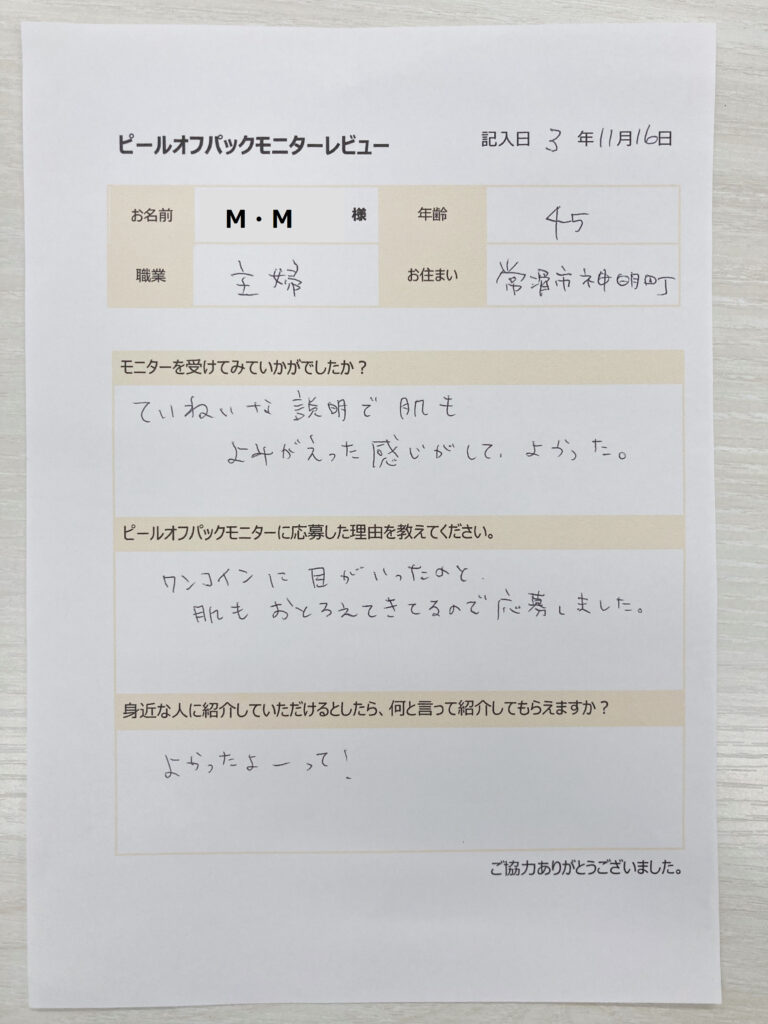 ピールオフパックモニターレビュー
記入日 3 年 11月16日
お名前 M・M 様 年齢 45
職業 主婦 お住まい 常滑市神明町
モニターを受けてみていかがでしたか？
ていねいな説明で肌も
よみがえった感じがして、よかった。
ピールオフパックモニターに応募した理由を教えてください。
ワンコインに目がいったのと、
肌もおとろえてきてるので応募しました。
身近な人に紹介していただけるとしたら、何と言って紹介してもらえますか？
よかったよーって！
ご協力ありがとうございました。